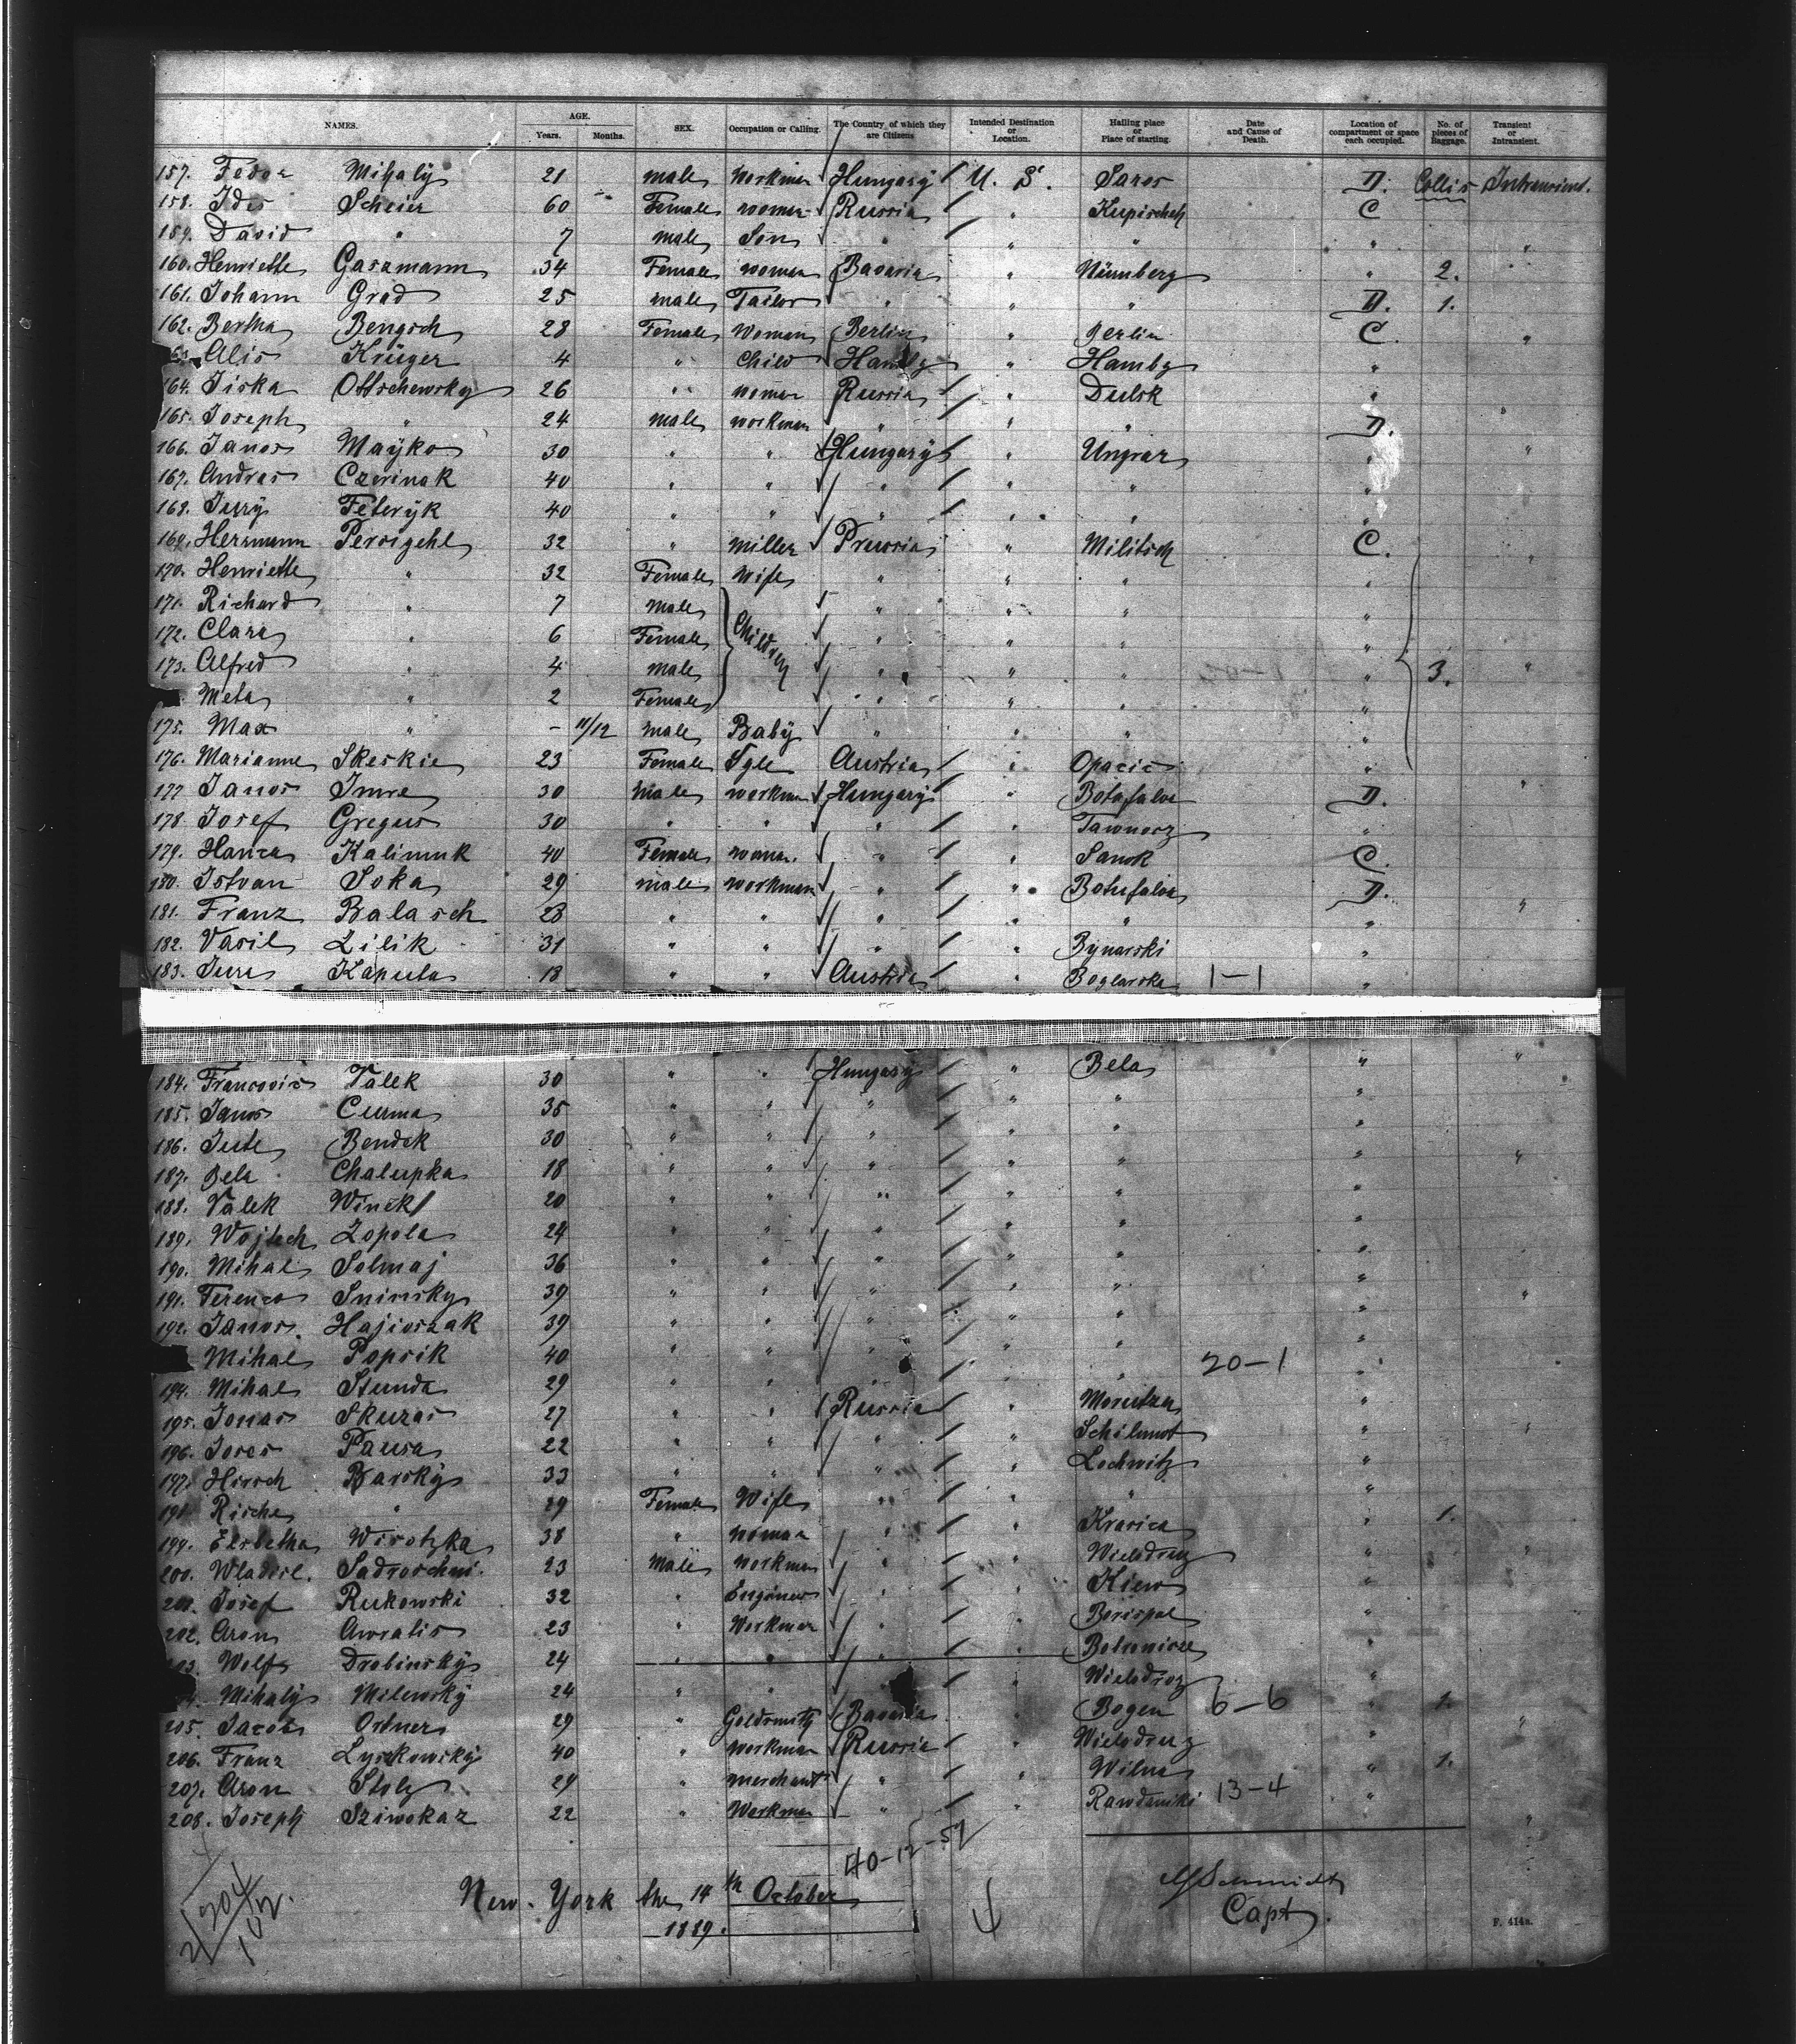 NAMES. AGE. Years. Months. SEX. Occupation or Calling. The Country of which they are Citizens Intended Destination or Location. Hailing place or Place of starting. Date and Cause of Death. Location of compartment or space each occupied. No. of pieces of Baggage. Transient or Intransient.
157. Fedor Mihaly 21 male workman Hungary U. S. Saros D. Collis Intransient.
158. Ides Scheier 60 Female woman Russia " Kupischek C
159. David " 7 male Son " " " " "
160. Henriette Gassmann 34 Female woman Bavaria " Nürnberg " 2. "
161. Johann Grad 25 male Tailor " " " D. 1.
162. Bertha Bengsch 28 Female Woman Berlin " Berlin C. "
Alis Krüger 4 " Child Hambg " Hambg "
164. Jiska Ottschewsky 26 " woman Russia " Dulsk "
165. Joseph " 24 male workman " " " D. "
166. Janos Mayko 30 " " Hungary " Ungvar " "
167. Andras Czerinak 40 " " " " " "
168. Jury Feteryk 40 " " " " " "
169. Herrmann Persigehl 32 " Miller Prussia " Militsch C.
170. Henriette " 32 Female Wife " " " " "
171. Richard " 7 male Children " " " "
172. Clara " 6 Female " " " "
173. Alfred " 4 male " " " " 3. "
Meta " 2 Female " " " "
175. Max " – 11/12 male Baby " " " "
176. Marianne Skeskie 23 Female Sgle Austria " Opacic "
177 Janos Imre 30 male workman Hungary " Botafalva D. "
178. Josef Gregus 30 " " " " Tawnorz "
179. Hanza Kalinuk 40 Female woman. " " Sanok C.
180. Istvan Soka 29 male workman " " Botufalva D.
181. Franz Balasch 28 " " " " " " "
182. Vasil Zilik 31 " " " " Bynarski "
183. Jura Kaputa 18 " " Austria " Boglarska 1–1 "
184. Francovic Valek 30 " " Hungary " Bela " "
185. Janos Curma 35 " " " " " "
186. Juste Bendek 30 " " " " " "
187. Bela Chalupka 18 " " " " " " "
188. Valek Winck 20 " " " " " "
189. Wojtech Zopola 24 " " " " " "
190. Mihal Solmaj 36 " " " " " "
191. Ferenco Sninsky 39 " " " " " " "
192. Janos Hajioszak 39 " " " " " "
Mihal Popsik 40 " " " " " "
194. Mihal Stunda 29 " " " " " 20–1 "
195. Jonas Skuzas 27 " " Russia " "
196. Joses Pausa 22 " " " " Schilunot " "
197. Hirsch Barsky 33 " " " " Lochwitz "
198. Rische " 29 Female Wife " " " "
199. Elsbetha Wisotzka 38 " Woman " " Krasica " 1.
200. Wladisl. 23 Male Workman " " " "
201. Josef Rukowski 32 " Engineer " " Kiew "
202. Aron Awratis 23 " Workman " " Borispol "
Wolf Drobinsky 24 " " " "
Mihaly Milewsky 24 " " " "
205. Jacob Ortner 29 " Goldsmith Bavaria " Bogen 6–6 " 1.
206. Franz Lyskowsky 40 " Workman Russia " "
207. Aron Stolz 29 " Merchant " " Wilna " 1.
208. Joseph Sziwokaz 22 " Workman " " 13–4 " "
40–12–57
New-York the 14th October
1889.
Schmidt
Capt.
F. 414a.
204/102.